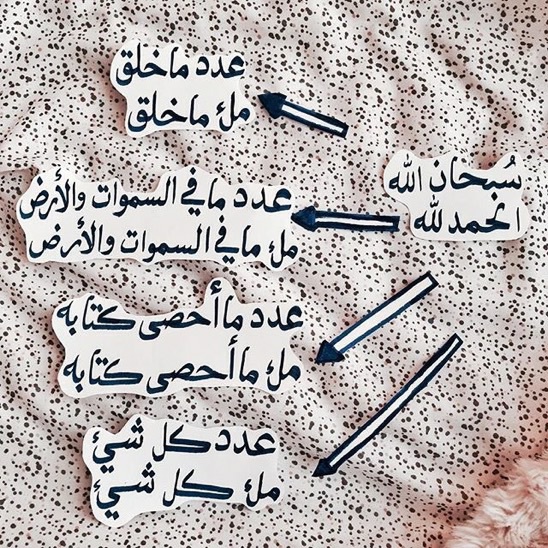 سُبحان الله
الحمد لله
عدد ما خلق
ملئ ما خلق
عدد ما في السموات والأرض
ملئ ما في السموات والأرض
عدد ما أحصى كتابه
ملئ ما أحصى كتابه
عدد كل شيئ
ملئ كل شيئ